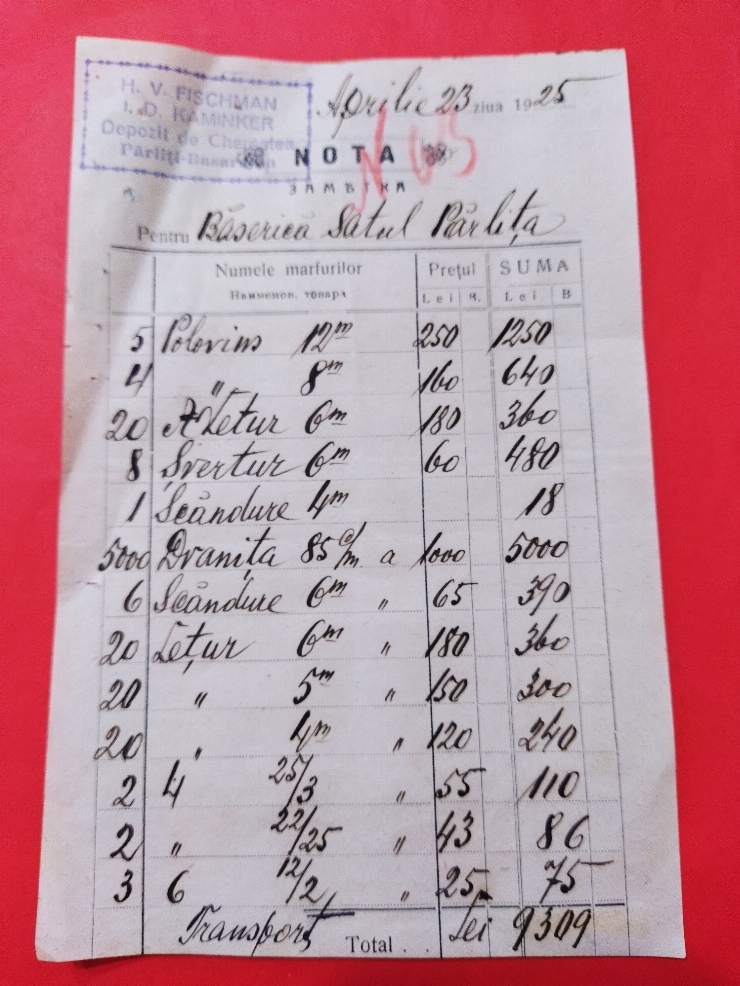 H. V. FISCHMAN
I. D. KAMINKER
Depozit de Cherestea
Pârliți-Basarabia
Aprilie 23 ziua 1925
No 3
NOTA
ЗАМѢТКА
Pentru Băserică Satul Pârlița
Numele marfurilor Prețul SUMA
Наименов. товара Lei B. Lei B
5 Polovins 12m 250 1250
4 " 8m 160 640
20 Letur 6m 180 360
8 Svertur 6m 60 480
1 Scăndure 4m 18
5000 Dranița 85 c/m a 1000 5000
6 Scăndure 6m " 65 390
20 Lețur 6m " 180 360
20 " 5m " 150 300
20 " 4m " 120 240
2 4 25/3 " 55 110
2 " 22/25 " 43 86
3 6 12/2 " 25 75
Transport Total . . Lei 9309